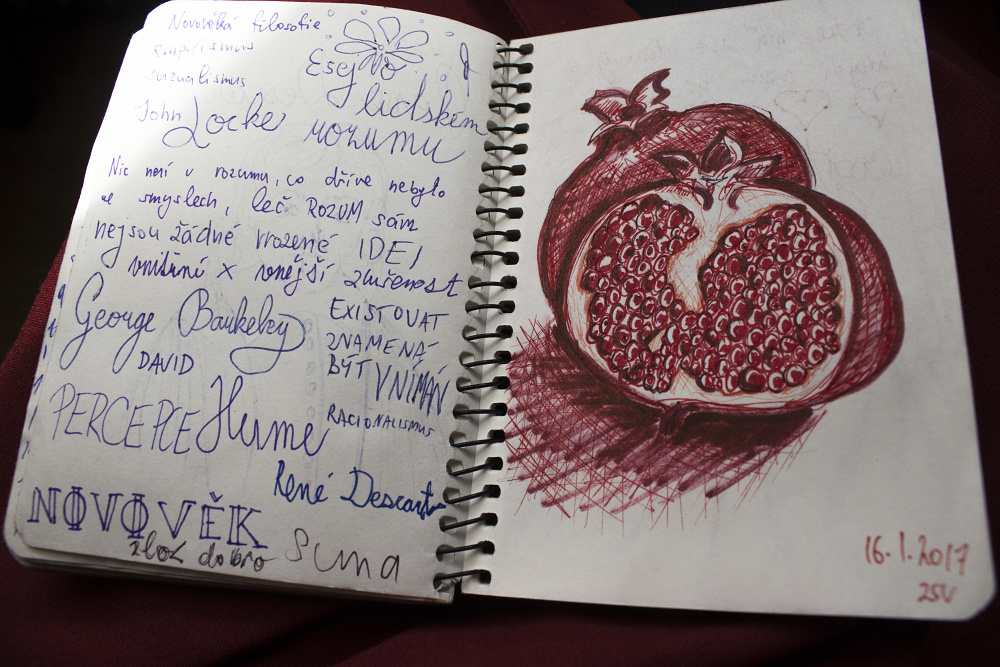 Novověká filosofie
empirismus
senzualismus
Esej o
lidském
rozumu
John
Locke
Nic není v rozumu, co dříve nebylo
ve smyslech, leč ROZUM sám
nejsou žádné vrozené IDEJ
vnitřní x vnější zkušenost
George Baukeley
EXISTOVAT
ZNAMENÁ
BÝT VNÍMÁN
DAVID
PERCEPCE Hume
RACIONALISMUS
René Descartes
NOVOVĚK
zlo x dobro
Suma
16.1.2017
ZSV